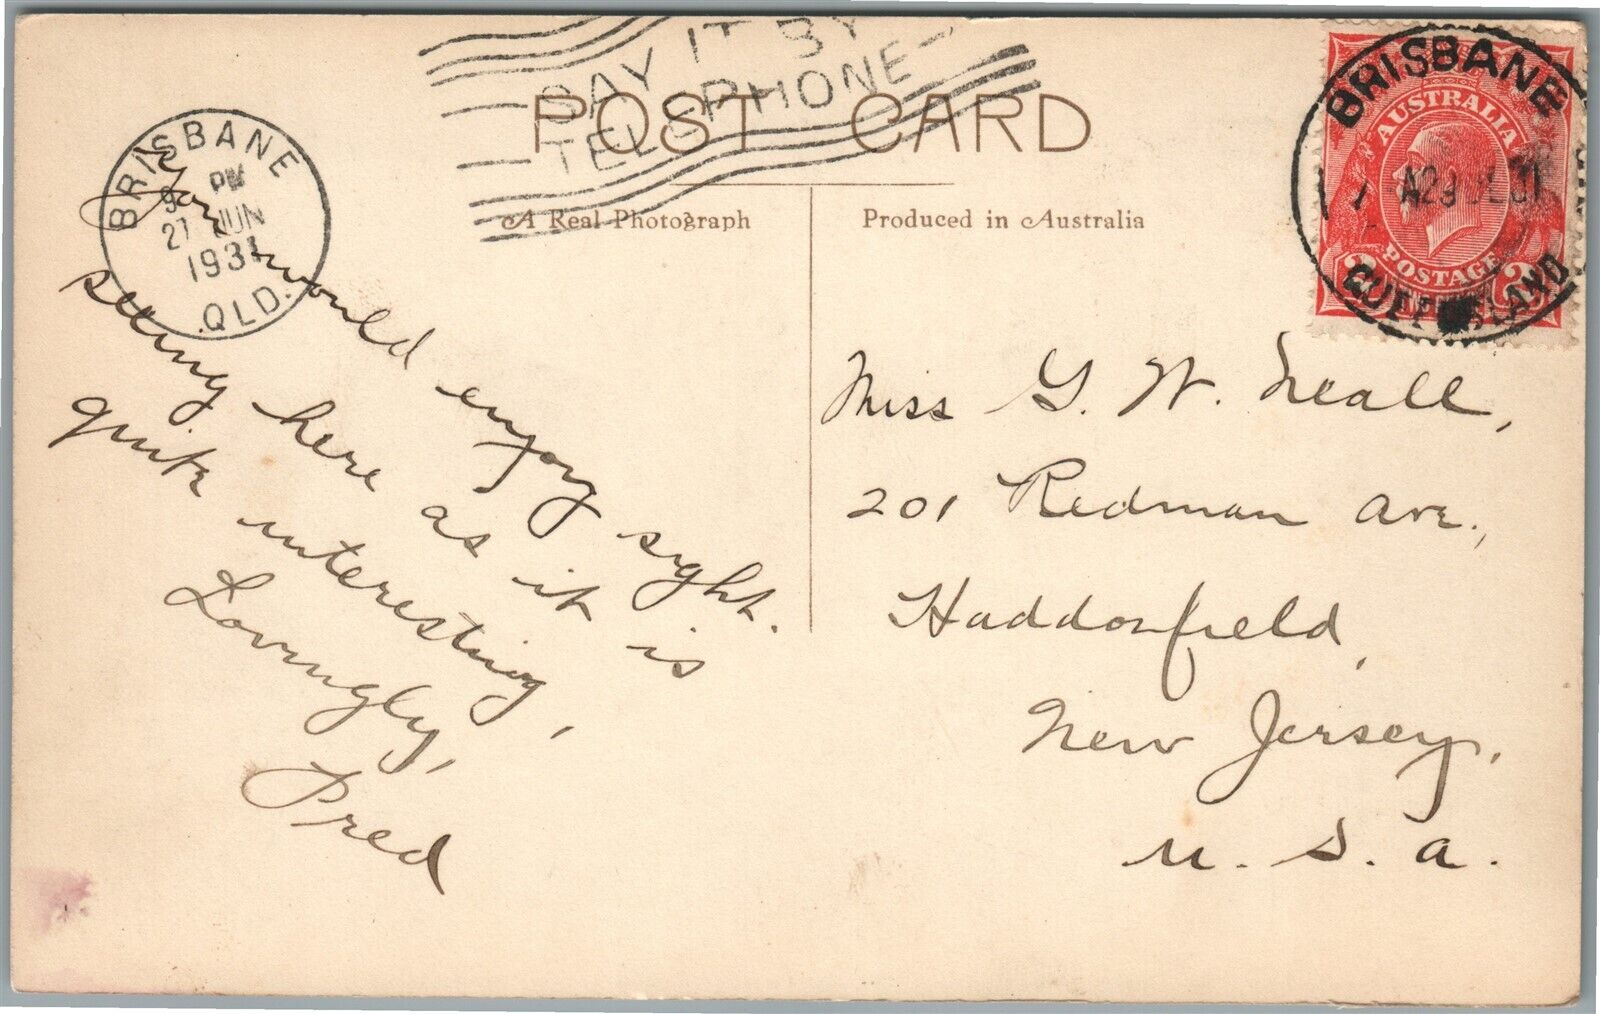 SAY IT BY
TELEPHONE
POST CARD
A Real Photograph
Produced in Australia
BRISBANE
9 PM
27 JUN
1931
QLD.
BRISBANE
QUEENSLAND
AUSTRALIA
POSTAGE
You would enjoy sight.
seeing here as it is
quite interesting,
Lovingly,
Fred
Miss G. W. Neall,
201 Redman Ave.,
Haddonfield,
New Jersey,
U. S. A.